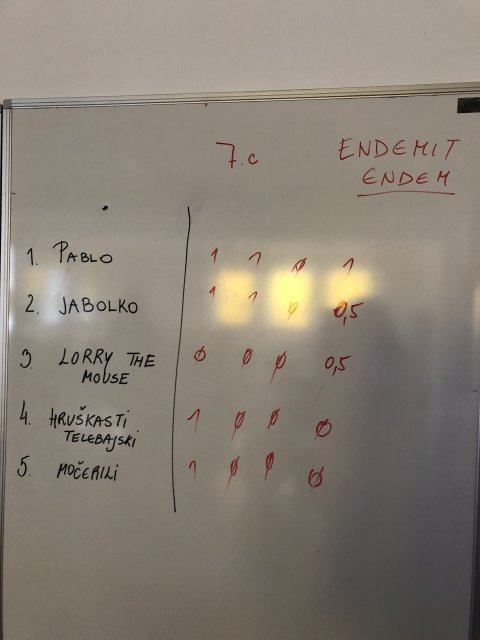 7.c
ENDEMIT
ENDEM
1. PABLO 1 1 0 1
2. JABOLKO 1 1 0 0,5
3. LORRY THE MOUSE 0 0 0 0,5
4. HRUŠKASTI TELEBAJSKI 1 0 0 0
5. MOČERILI 1 0 0 0